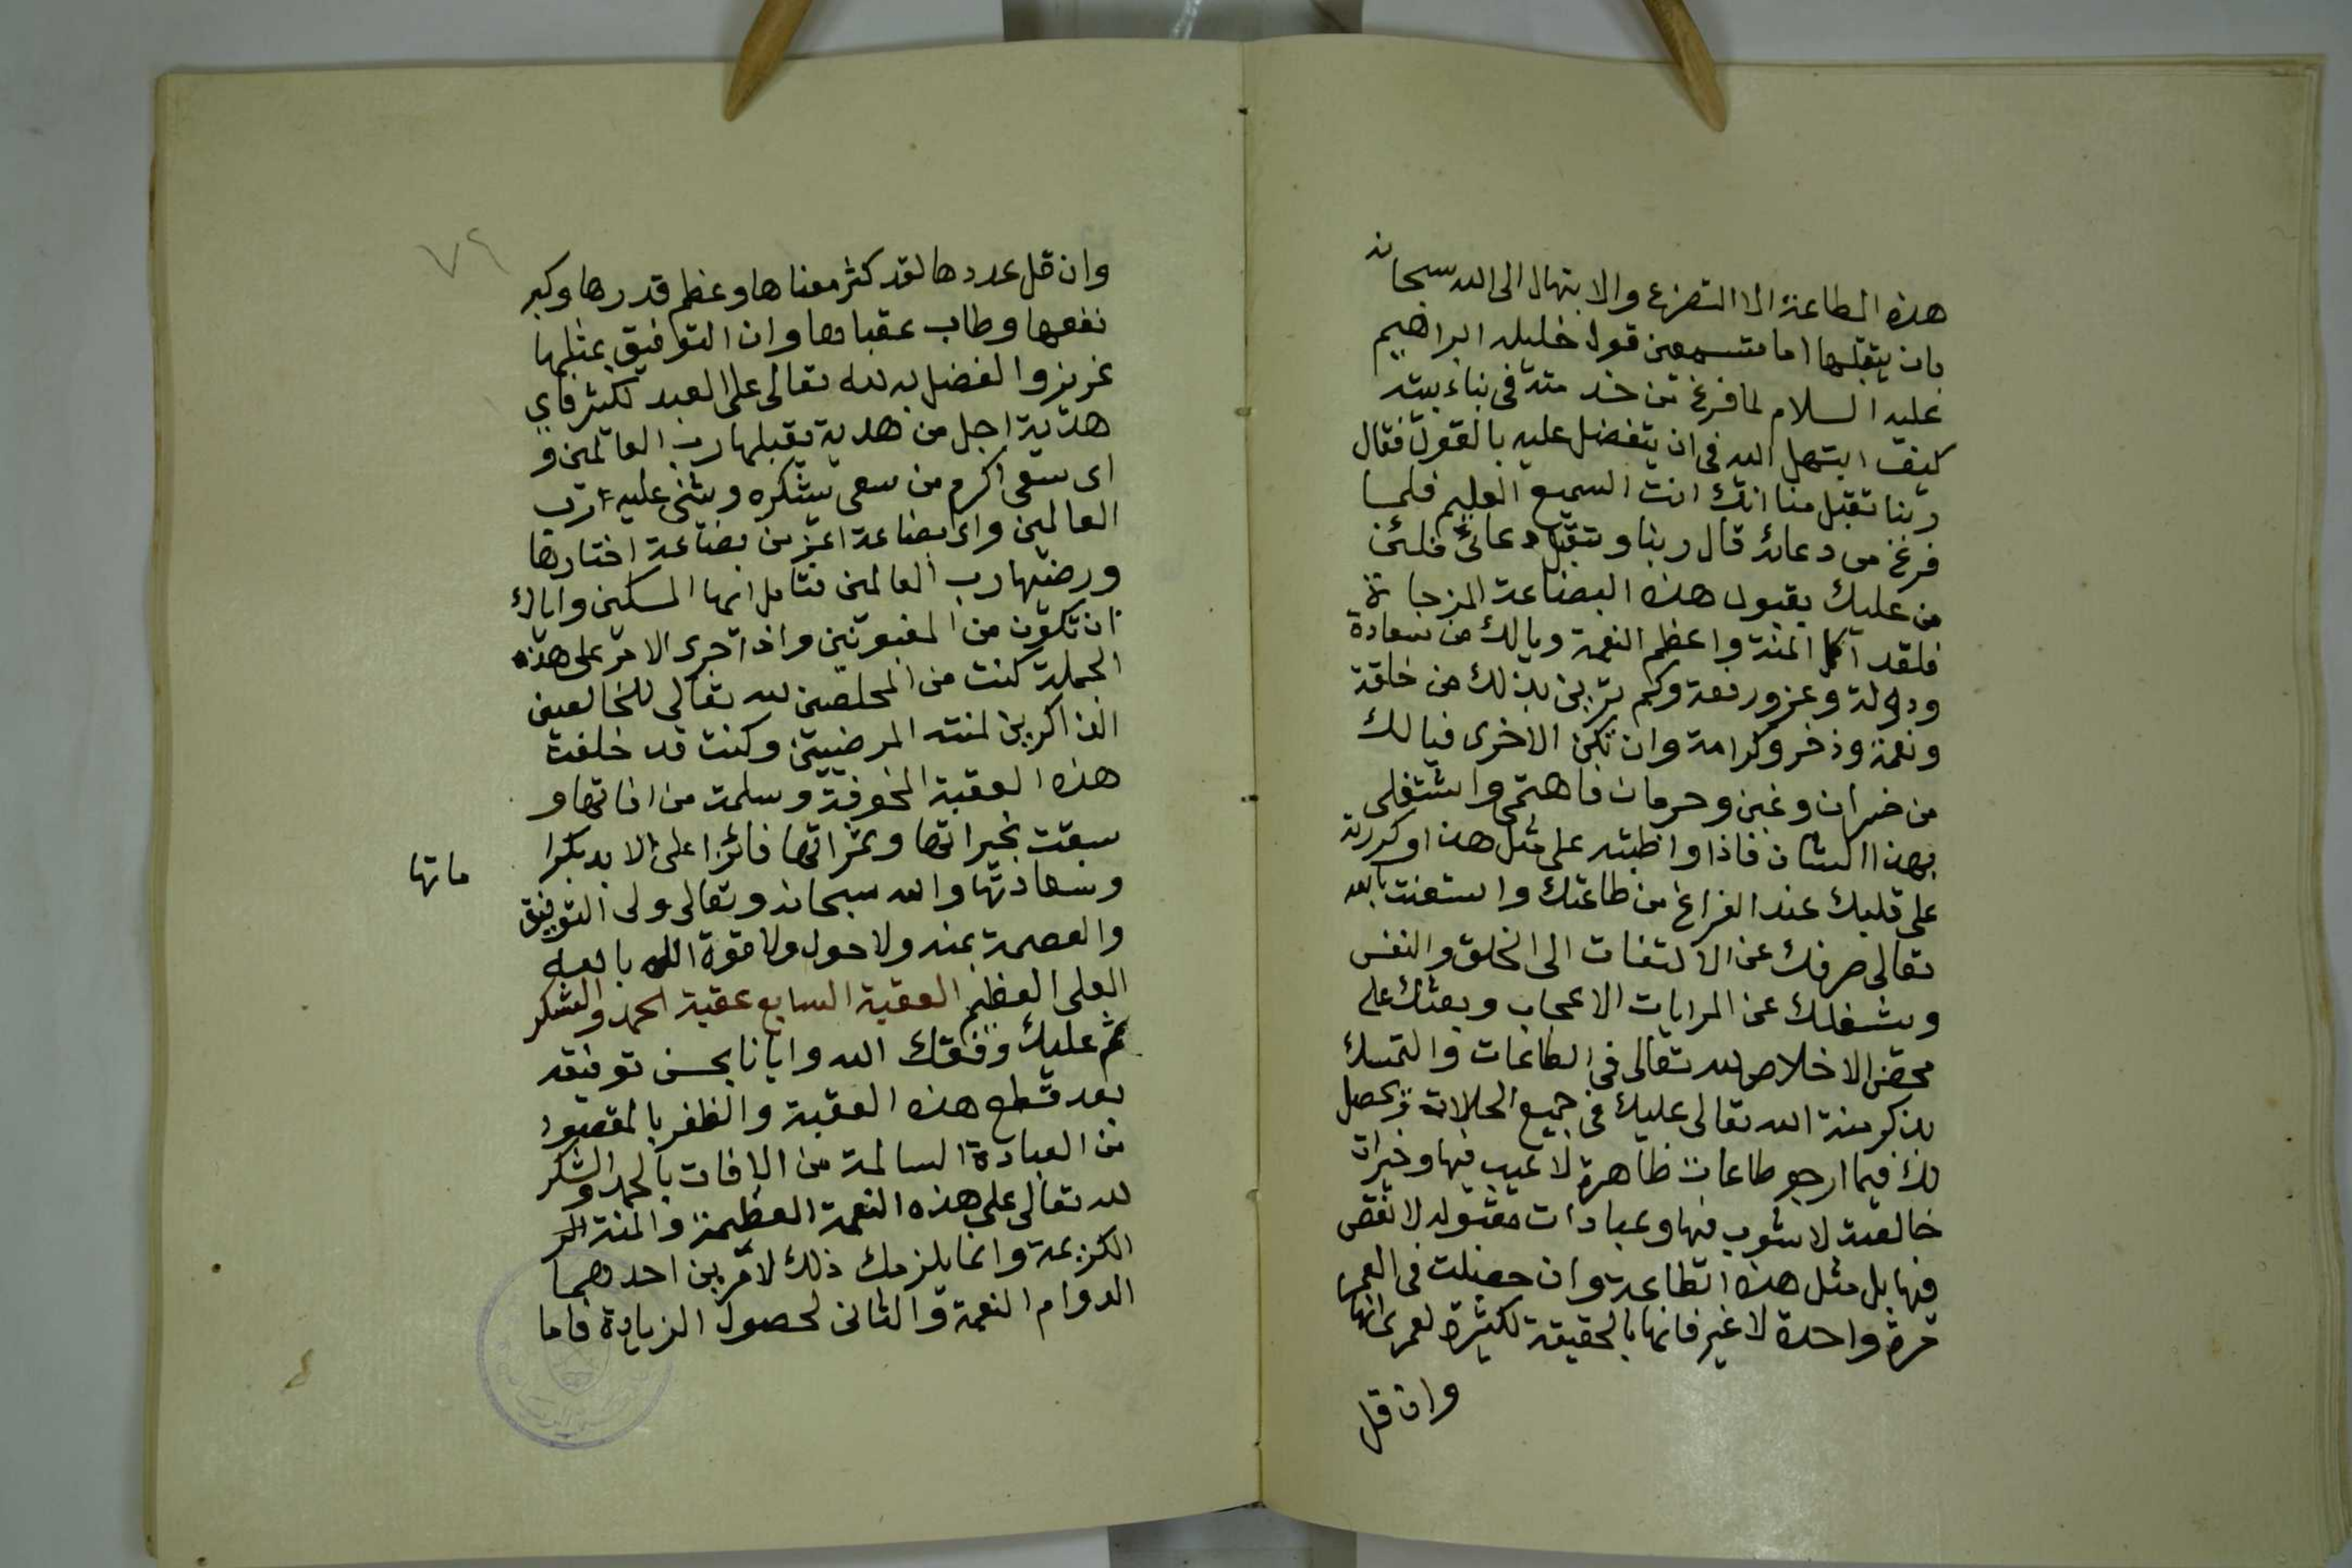 هذه الطاعة الا التضرع والابتهال الى الله سبحانه
بان يتقبلها اما تسمعين قول خليله ابراهيم
عليه السلام لما فرغ من خدمته فى بناء بيته
كيف ابتهل الله فى ان يتفضل عليه بالقبول فقال
ربنا تقبل منا انك انت السميع العليم فلما
فرغ من دعائه قال ربنا وتقبل دعائى فلئن
من عليك بقبول هذه البضاعة المزجاة
فلقد اكمل المنة واعظم النعمة ويالك من سعادة
ودولة وعز ورفعة وكم ترين بذلك من خلقة
ونعمة وذخر وكرامة وان تكن الاخرى فيالك
من خسران وغبن وحرمان فاهتمى واشتغلى
بهذا الشان فاذا واظبته على مثل هذا وكررته
على قلبك عند الفراغ من طاعتك واستعنت بالله
تعالى صرفك عن الالتفات الى الخلق والنفس
ويشغلك عن المرايات الاعجاب وبعثك على
محض الاخلاص لله تعالى فى الطاعات والتمسك
بذكر منة الله تعالى عليك فى جميع الحالات ويحصل
لك فيما ارجو طاعات ظاهرة لا عيب فيها وخيرات
خالصة لا شوب فيها وعبادات مقبولة لا نقص
فيها بل مثل هذه الطاعة وان حصلت فى العمر
مرة واحدة لا غير فانها بالحقيقة لكثيرة لعمرى انها
وان قل
٧٩
وان قل عددها لقد كثر معناها وعظم قدرها وكبر
نفعها وطاب عقباها وان التوفيق بمثلها
عزيز والفضل به لله تعالى على العبد لكثير فاي
هدية اجل من هدية يقبلها رب العالمين و
اى سعى اكرم من سعى يشكره ويثنى عليه رب
العالمين واى بضاعة اعز من بضاعة اختارها
ورضيها رب العالمين فتامل ايها المسكين واياك
ان تكون من المغبونين واذا جرى الامر على هذه
الجملة كنت من المخلصين لله تعالى للخالصين
الذاكرين لمنته المرضيين وكنت قد خلفت
هذه العقبة المخوفة وسلمت من افاتها و
سبقت بخيراتها وثمراتها فائزا على الابد بكرا
ماتها
وسعادتها والله سبحانه وتعالى ولى التوفيق
والعصمة بمنه ولا حول ولا قوة الا بالله
العلى العظيم العقبة السابع عقبة الحمد والشكر
ثم عليك وفقك الله وايانا بحسن توفيقه
بعد قطع هذه العقبة والظفر بالمقصود
من العبادة السالمة من الافات بالحمد والشكر
لله تعالى على هذه النعمة العظيمة والمنة
الكريمة وانما يلزمك ذلك لامرين احدهما
الدوام النعمة والثانى لحصول الزيادة فاما